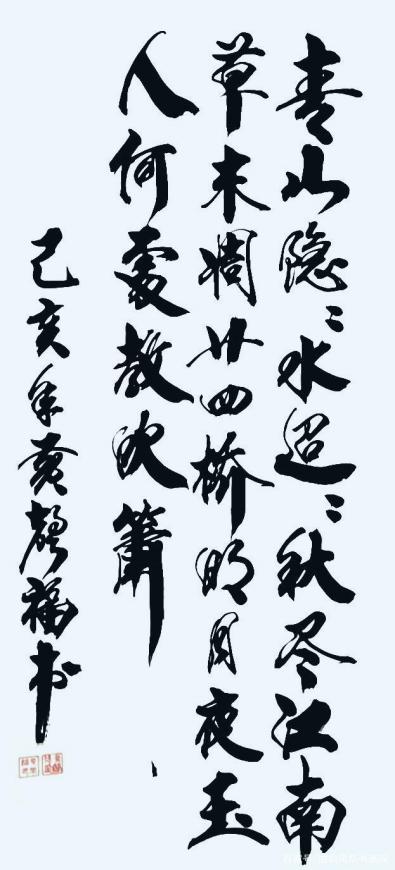 青山隐〻水迢〻秋尽江南
草未凋廿四桥明月夜玉
人何处教吹箫
己亥年黄声福书